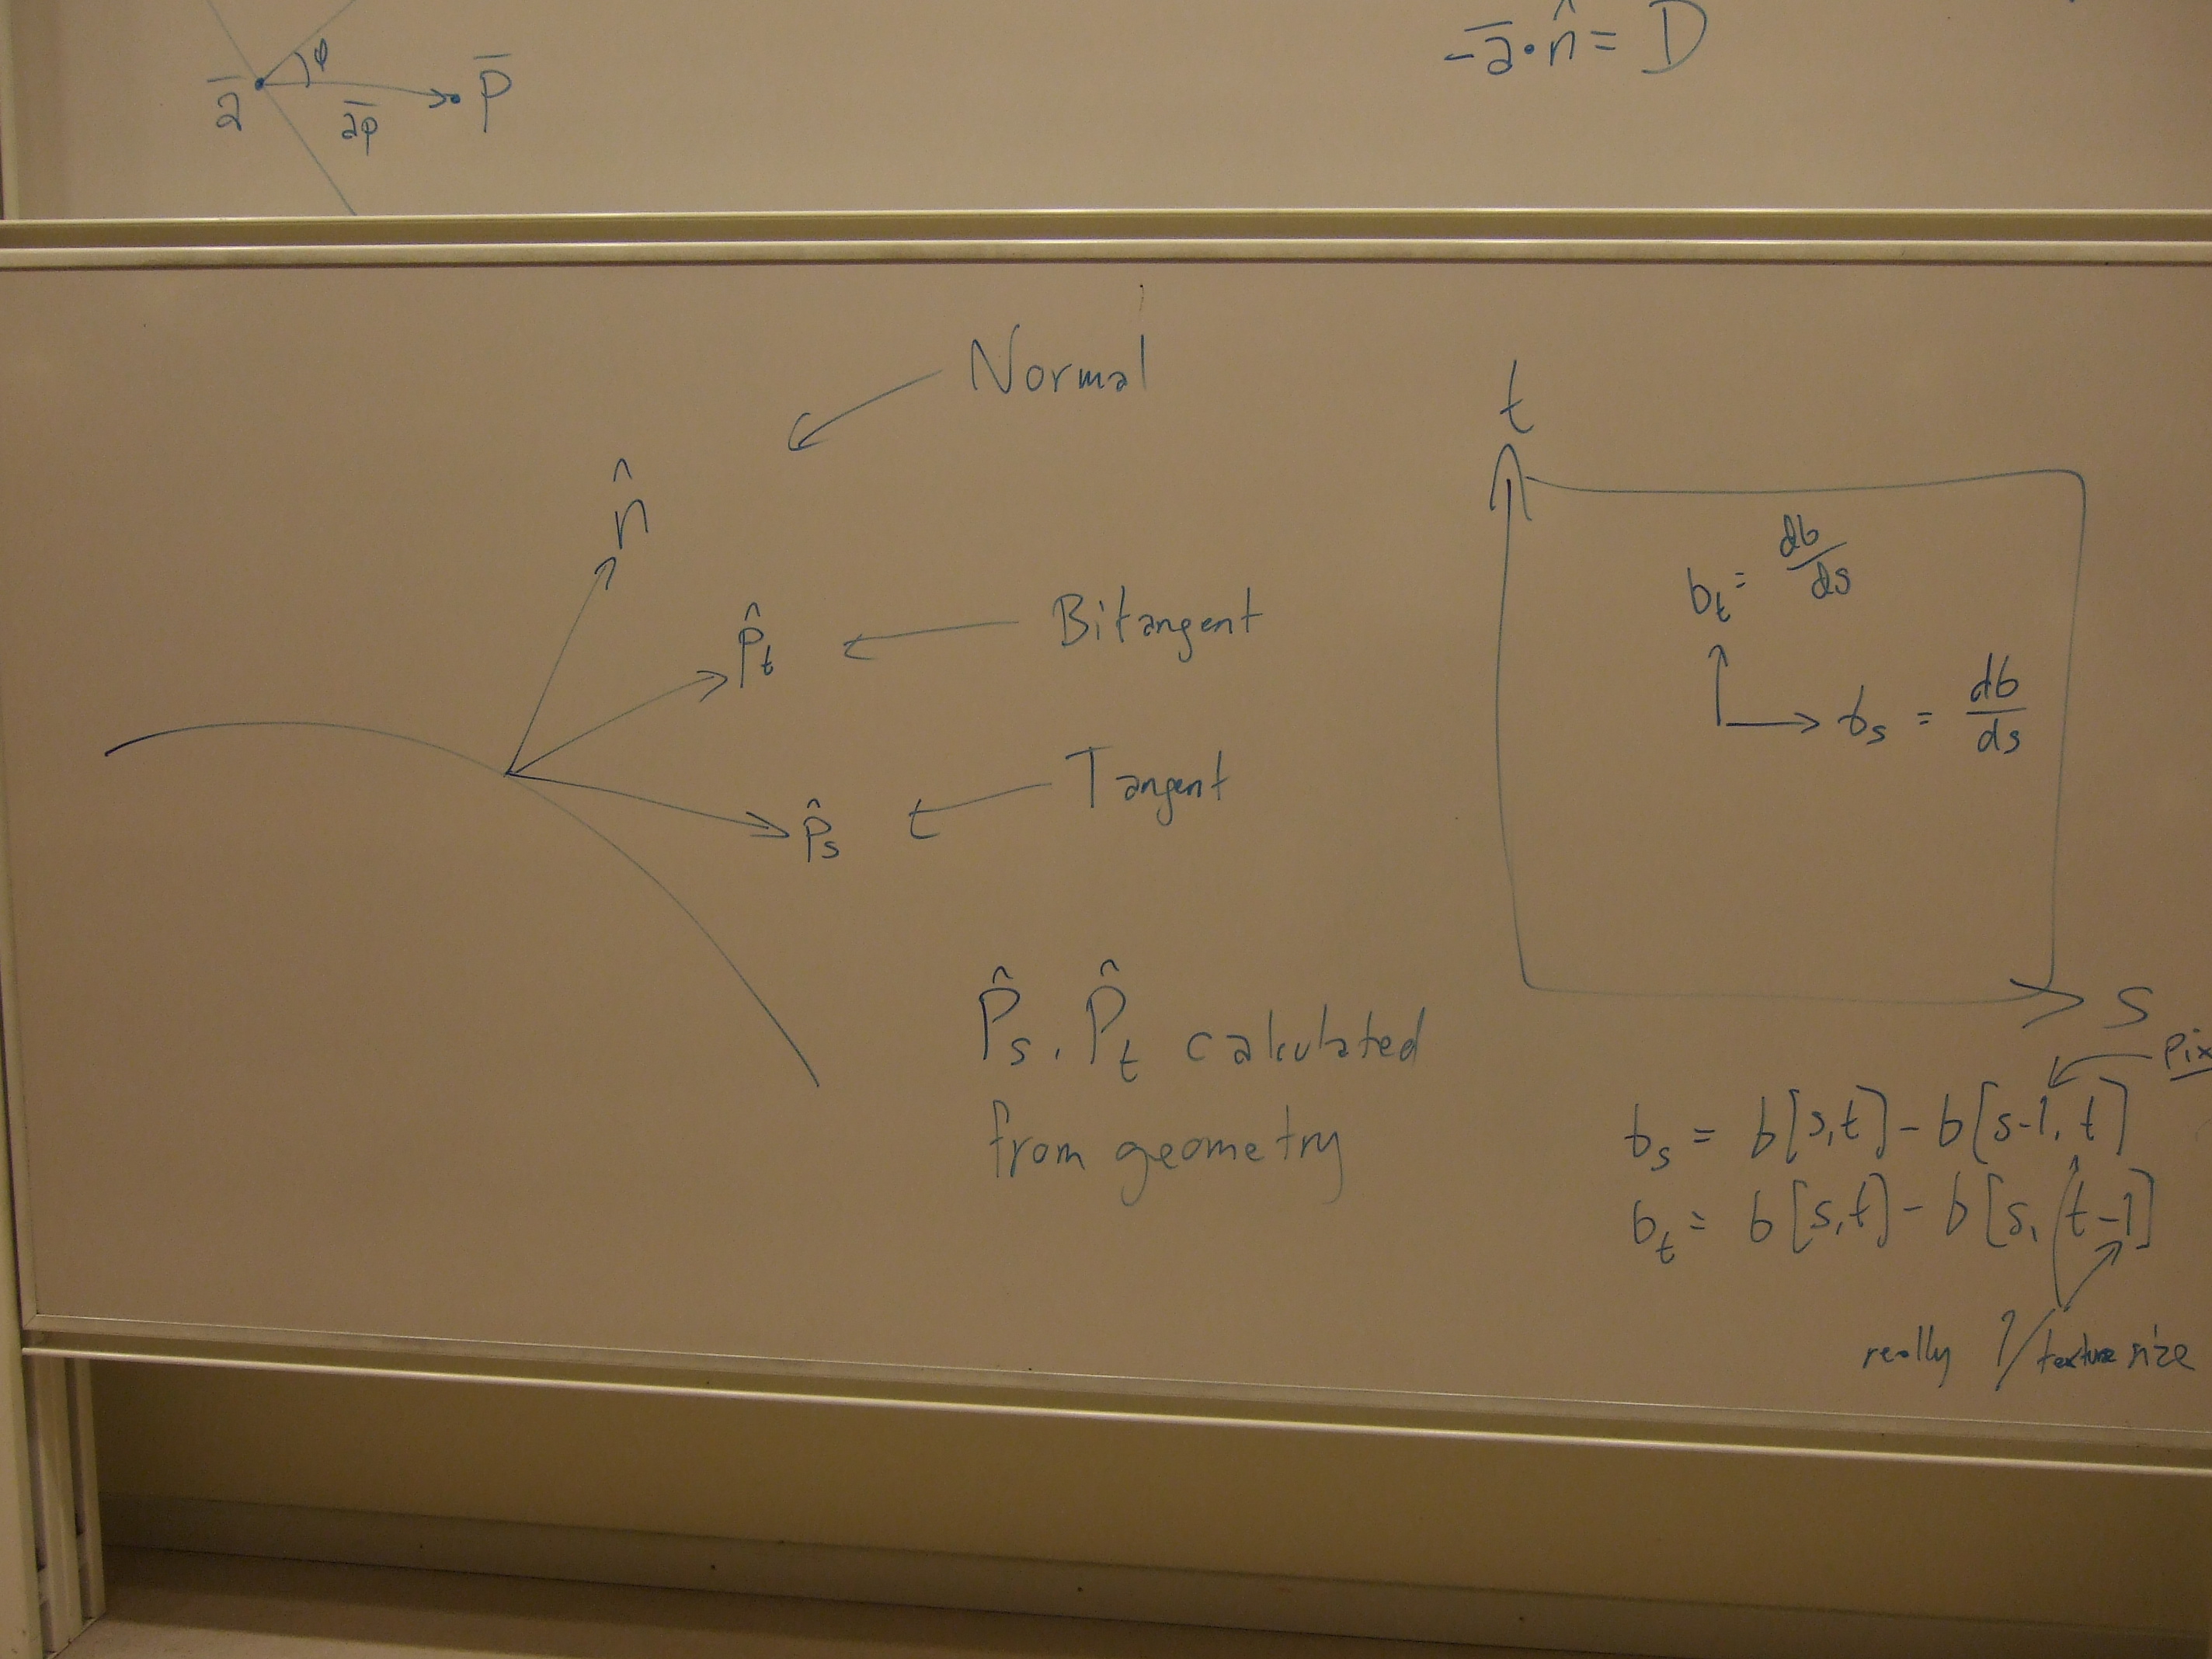 φ
a̅
a̅p̅
p̅
-a̅·n̂ = D
Normal
n̂
p̂t
Bitangent
p̂s
Tangent
P̂s, P̂t calculated
from geometry
t
bt = db/ds
bs = db/ds
s
pix
bs = b[s,t] - b[s-1, t]
bt = b[s,t] - b[s, t-1]
really 1/texture size